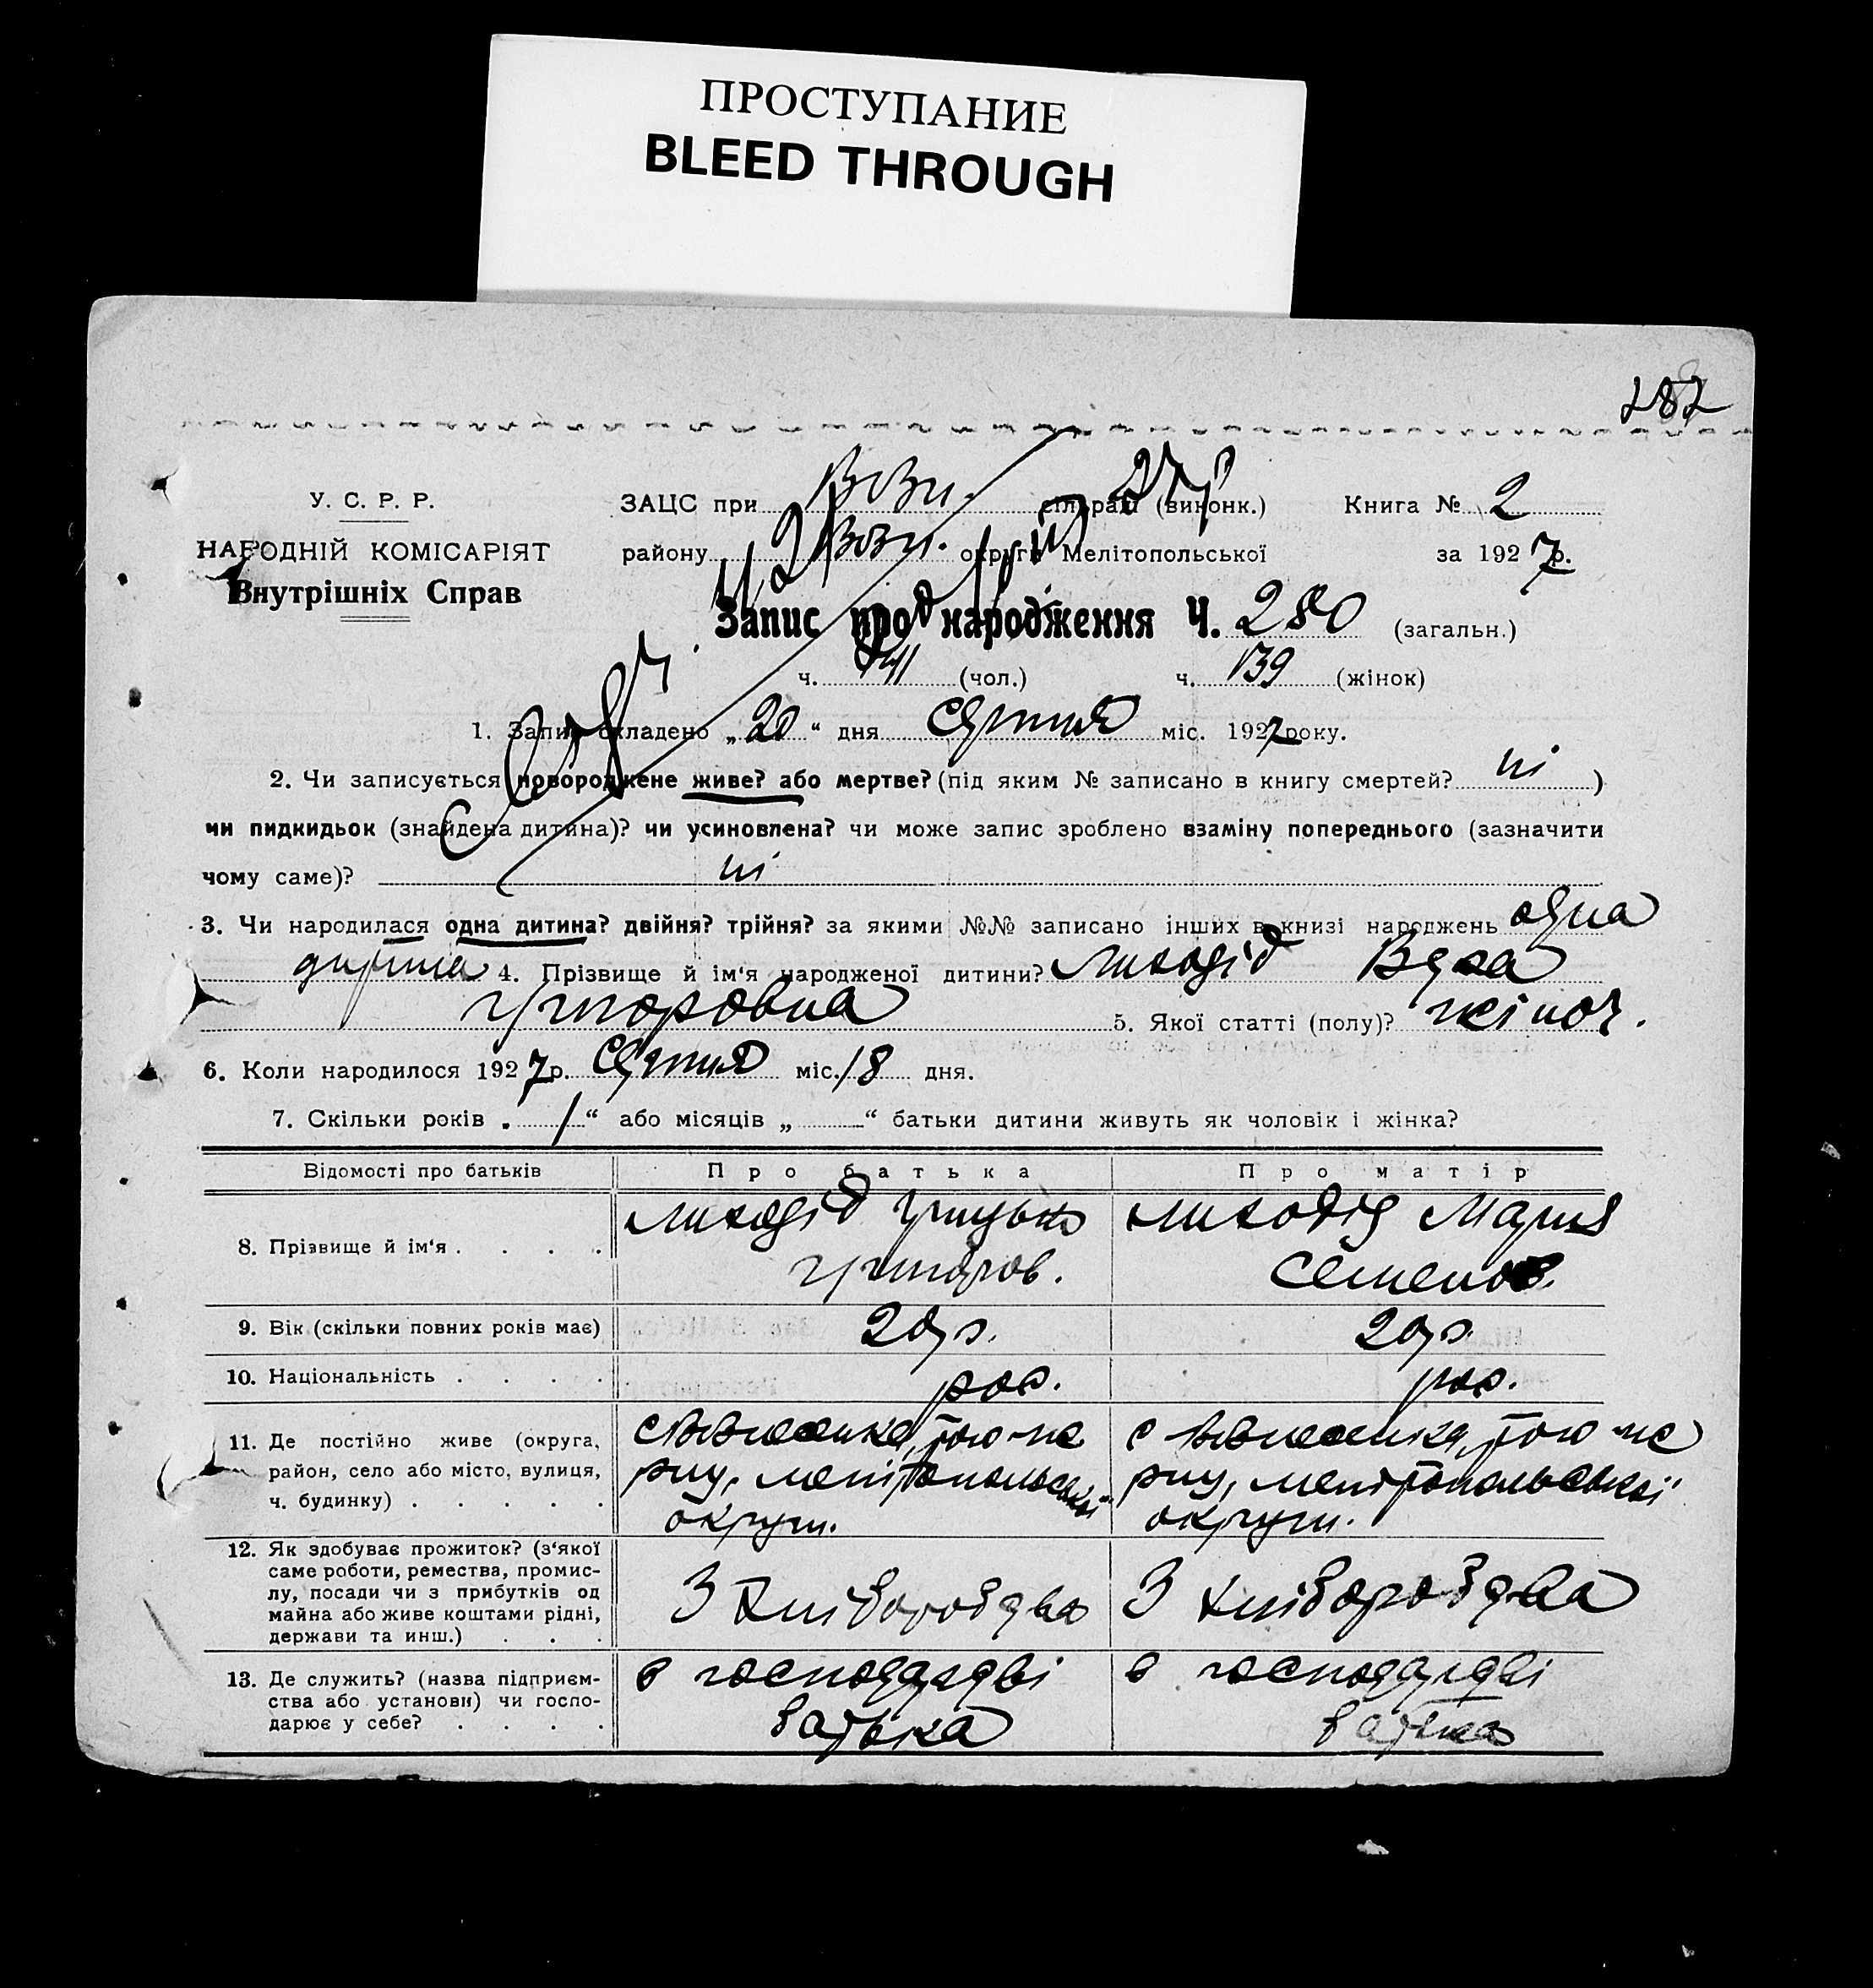 ПРОСТУПАНИЕ
BLEED THROUGH
282
У. С. Р. Р.
НАРОДНІЙ КОМІСАРІЯТ
Внутрішніх Справ
ЗАЦС при ВВзн. сільраді (виконк.) Книга № 2
району ВВзн. округи Мелітопольської за 1927 р.
Запис про народження Ч. 280 (загальн.)
ч. 141 (чол.) ч. 139 (жінок)
1. Запис складено „20“ дня серпня міс. 1927 року.
2. Чи записується новороджене живе? або мертве? (під яким № записано в книгу смертей? ні )
чи пидкидьок (знайдена дитина)? чи усиновлена? чи може запис зроблено взаміну попереднього (зазначити
чому саме)? ні
3. Чи народилася одна дитина? двійня? трійня? за якими №№ записано інших в книзі народжень одна
дитина 4. Прізвище й ім'я народженої дитини? Лиходід Вера
Григоровна 5. Якої статті (полу)? жіноч.
6. Коли народилося 1927 р. серпня міс. 18 дня.
7. Скільки років „1“ або місяців „ “ батьки дитини живуть як чоловік і жінка?
Відомості про батьків Про батька Про матір
8. Прізвище й ім'я . . . . Лиходід Грицько Григоров. Лиходід Мария Семенов.
9. Вік (скільки повних років має) 20 р. 20 р.
10. Національність . . . . рос. рос.
11. Де постійно живе (округа,
район, село або місто, вулиця,
ч. будинку) . . . . . мелітопольської округи. мелітопольської округи.
12. Як здобуває прожиток? (з'якої
саме роботи, ремества, промис-
лу, посади чи з прибутків од
майна або живе коштами рідні,
держави та инш.) . . . З хліборобства З хліборобства
13. Де служить? (назва підприєм-
ства або установи) чи госпо-
дарює у себе? . . . . в господарстві батька в господарстві батька